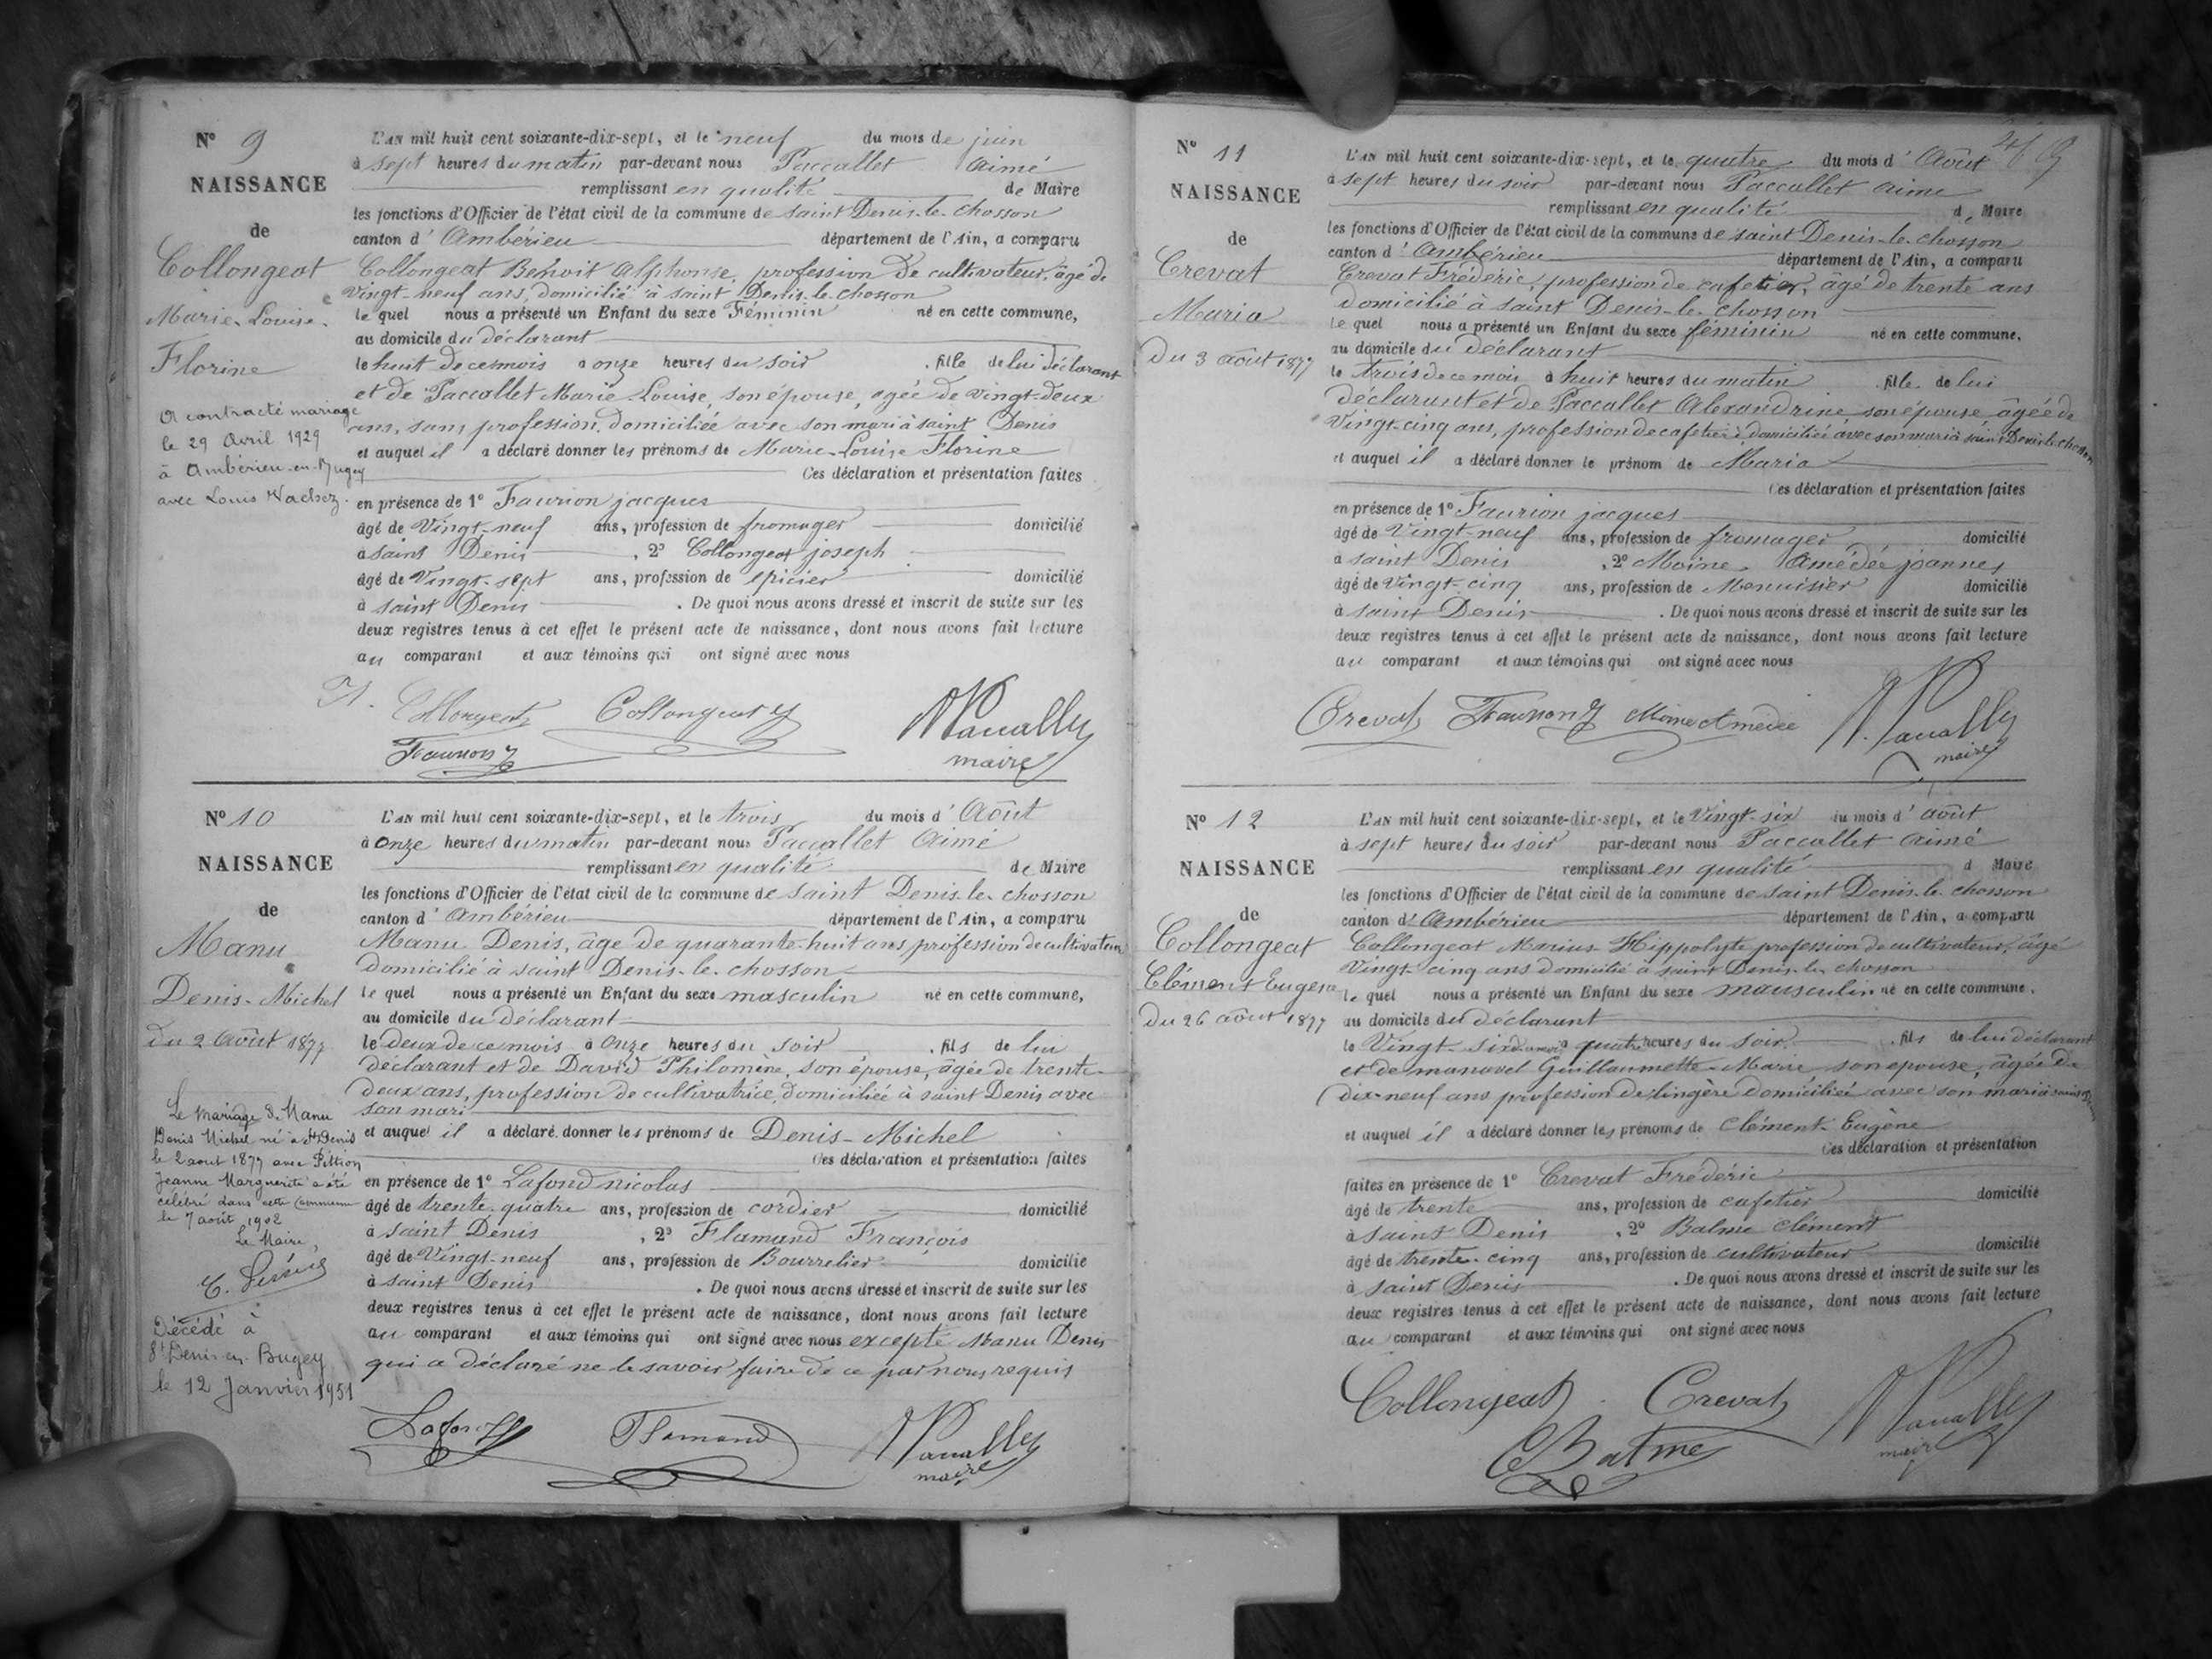 N° 9
NAISSANCE
de
Collongeat
Marie-Louise-
Florine
A contracté mariage
le 29 Avril 1929
à Ambérieu-en-Bugey
avec Louis
L'AN mil huit cent soixante-dix-sept, et le neuf du mois de juin
à sept heures du matin par-devant nous Paccallet Aimé
remplissant en qualité de Maire
les fonctions d'Officier de l'état civil de la commune de saint Denis-le-chosson
canton d'Ambérieu département de l'Ain, a comparu
Collongeat Benoit Alphonse, profession de cultivateur, âgé de
vingt-neuf ans, domicilié à saint Denis-le-chosson
le quel nous a présenté un Enfant du sexe Féminin né en cette commune,
au domicile du déclarant
le huit de ce mois à onze heures du soir, fille de lui déclarant
et de Paccallet Marie Louise, son épouse, agée de vingt-deux
ans, sans profession, domiciliée avec son mari à saint Denis
et auquel il a déclaré donner les prénoms de Marie-Louise Florine
Ces déclaration et présentation faites
en présence de 1° Faurion jacques
âgé de Vingt-neuf ans, profession de fromager domicilié
à saint Denis, 2° Collongeat joseph
âgé de Vingt-sept ans, profession de épicier domicilié
à saint Denis. De quoi nous avons dressé et inscrit de suite sur les
deux registres tenus à cet effet le présent acte de naissance, dont nous avons fait lecture
au comparant et aux témoins qui ont signé avec nous
Collongeat Collongeat J Paccallet
Faurion J maire
N° 10
NAISSANCE
de
Manu
Denis-Michel
Du 2 Août 1877
Le mariage de Manu
Denis Michel né à St Denis
le 2 aout 1877 avec Pittion
Jeanne Marguerite a été
célébré dans cette commune
le 7 août 1902
Le Maire,
Décédé à
St Denis en Bugey
le 12 Janvier 1951
L'AN mil huit cent soixante-dix-sept, et le trois du mois d'Août
à onze heures du matin par-devant nous Paccallet Aimé
remplissant en qualité de Maire
les fonctions d'Officier de l'état civil de la commune de saint Denis-le-chosson
canton d'Ambérieu département de l'Ain, a comparu
Manu Denis, âge de quarante-huit ans profession de cultivateur
domicilié à saint Denis-le-chosson
le quel nous a présenté un Enfant du sexe masculin né en cette commune,
au domicile du déclarant
le deux de ce mois à onze heures du soir, fils de lui
déclarant et de David Philomène, son épouse, agée de trente-
deux ans, profession de cultivatrice, domiciliée à saint Denis avec
son mari
et auquel il a déclaré donner les prénoms de Denis-Michel
Ces déclaration et présentation faites
en présence de 1° Lafond nicolas
âgé de trente-quatre ans, profession de cordier domicilié
à saint Denis, 2° Flamand François
âgé de Vingt-neuf ans, profession de Bourrelier domicilié
à saint Denis. De quoi nous avons dressé et inscrit de suite sur les
deux registres tenus à cet effet le présent acte de naissance, dont nous avons fait lecture
au comparant et aux témoins qui ont signé avec nous excepté Manu Denis
qui a déclaré ne le savoir faire de ce par nous requis
Lafond Flamand Paccallet
maire
N° 11
NAISSANCE
de
Crevat
Maria
Du 3 août 1877
L'AN mil huit cent soixante-dix-sept, et le quatre du mois d'Août
à sept heures du soir par-devant nous Paccallet aimé
remplissant en qualité d. Maire
les fonctions d'Officier de l'état civil de la commune de saint Denis-le-chosson
canton d'Ambérieu département de l'Ain, a comparu
Crevat Frédéric, profession de cafetier, âgé de trente ans
domicilié à saint Denis-le-chosson
le quel nous a présenté un Enfant du sexe féminin né en cette commune,
au domicile du déclarant
le trois de ce mois à huit heures du matin, fille de lui
déclarant et de Paccallet Alexandrine son épouse âgée de
Vingt-cinq ans, profession de cafetière, domiciliée avec son mari à saint Denis le chosson
et auquel il a déclaré donner le prénom de Maria
Ces déclaration et présentation faites
en présence de 1° Faurion jacques
âgé de Vingt-neuf ans, profession de fromager domicilié
à saint Denis, 2° Moine Amédée joannes
âgé de Vingt-cinq ans, profession de Menuisier domicilié
à saint Denis. De quoi nous avons dressé et inscrit de suite sur les
deux registres tenus à cet effet le présent acte de naissance, dont nous avons fait lecture
au comparant et aux témoins qui ont signé avec nous
Crevat Faurion J Moine Amédée Paccallet
maire
N° 12
NAISSANCE
de
Collongeat
Clément Eugène
Du 26 août 1877
L'AN mil huit cent soixante-dix-sept, et le Vingt-six du mois d'août
à sept heures du soir par-devant nous Paccallet aimé
remplissant en qualité d Maire
les fonctions d'Officier de l'état civil de la commune de saint Denis-le-chosson
canton d'Ambérieu département de l'Ain, a comparu
Collongeat Marius Hippolyte profession de cultivateur, âgé
Vingt-cinq ans domicilié à saint Denis-le-chosson
le quel nous a présenté un Enfant du sexe mausculin né en cette commune,
au domicile du déclarant
le Vingt-six du mois à quatre heures du soir, fils de lui déclarant
et de manovel Guillaumette-Marie son épouse, âgée de
dix-neuf ans profession de lingère domiciliée avec son mari à saint Denis
et auquel il a déclaré donner les prénoms de Clément-Eugène
Ces déclaration et présentation
faites en présence de 1° Crevat Frédéric
âgé de trente ans, profession de cafetier domicilié
à saint Denis, 2° Balme Clément
âgé de trente-cinq ans, profession de cultivateur domicilié
à saint Denis. De quoi nous avons dressé et inscrit de suite sur les
deux registres tenus à cet effet le présent acte de naissance, dont nous avons fait lecture
au comparant et aux témoins qui ont signé avec nous
Collongeat Crevat Paccallet
Balme maire